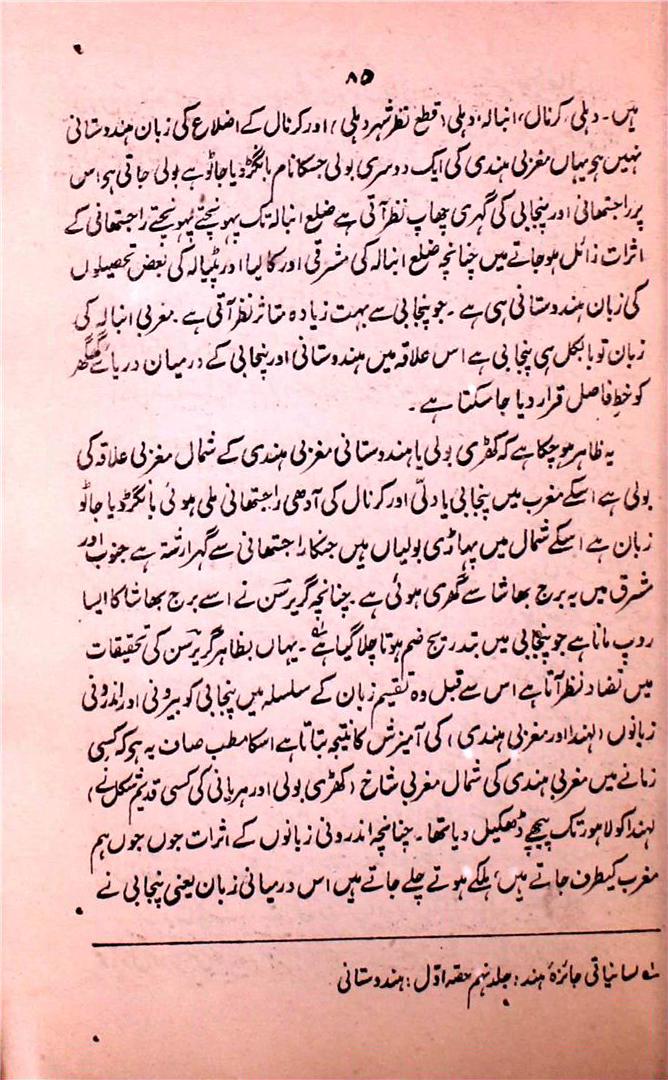 ۸۵
ہیں۔ دہلی، کرنال، انبالہ، دہلی (قطع نظر شہر دہلی) اور کرنال کے اضلاع کی زبان ہندوستانی
نہیں ہو یہاں مغربی ہندی کی ایک دوسری بولی جسکا نام بانگڑو یا جاٹو ہے بولی جاتی ہو اس
پر راجتھانی اور پنجابی کی گہری چھاپ نظر آتی ہے ضلع انبالہ تک پہونچتے پہونچتے راجتھانی کے
اثرات زائل ہو جاتے ہیں چنانچہ ضلع انبالہ کی مشرقی اور کالیا اور پٹیالہ کی بعض تحصیلوں
کی زبان ہندوستانی ہی ہے۔ جو پنجابی سے بہت زیادہ متاثر نظر آتی ہے۔ مغربی انبالہ کی
زبان تو بالکل ہی پنجابی ہے اس علاقہ میں ہندوستانی اور پنجابی کے درمیان دریائے گھگھر
کو خطِ فاصل قرار دیا جا سکتا ہے۔
یہ ظاہر ہو چکا ہے کہ کھڑی بولی یا ہندوستانی مغربی ہندی کے شمال مغربی علاقہ کی
بولی ہے اسکے مغرب میں پنجابی یا دلّی اور کرنال کی آدھی راجتھانی ملی ہوئی بانگڑو یا جاٹو
زبان ہے اسکے شمال میں پہاڑی بولیاں ہیں جنکا راجتھانی سے گہرا رشتہ ہے جنوب اور
مشرق میں یہ برج بھاشا سے گھری ہوئی ہے۔ چنانچہ گریرسن نے اسے برج بھاشا کا ایسا
روپ مانا ہے جو پنجابی میں بتدریج ضم ہوتا چلا گیا ہے۔ یہاں بظاہر گریرسن کی تحقیقات
میں تضاد نظر آتا ہے اس سے قبل وہ تقسیم زبان کے سلسلہ میں پنجابی کو بیرونی اور اندرونی
زبانوں (لہندا اور مغربی ہندی) کی آمیزش کا نتیجہ بتاتا ہے اسکا مطلب صاف یہ ہو کہ کسی
زمانے میں مغربی ہندی کی شمال مغربی شاخ (کھڑی بولی اور ہریانی کی کسی قدیم شکل نے)
لہندا کو لاہور تک پیچھے ڈھکیل دیا تھا۔ چنانچہ اندرونی زبانوں کے اثرات جوں جوں ہم
مغرب کیطرف جاتے ہیں، ہلکے ہوتے چلے جاتے ہیں اس درمیانی زبان یعنی پنجابی نے
لسانیاتی جائزۂ ہند: جلد نہم حصہ اوّل: ہندوستانی